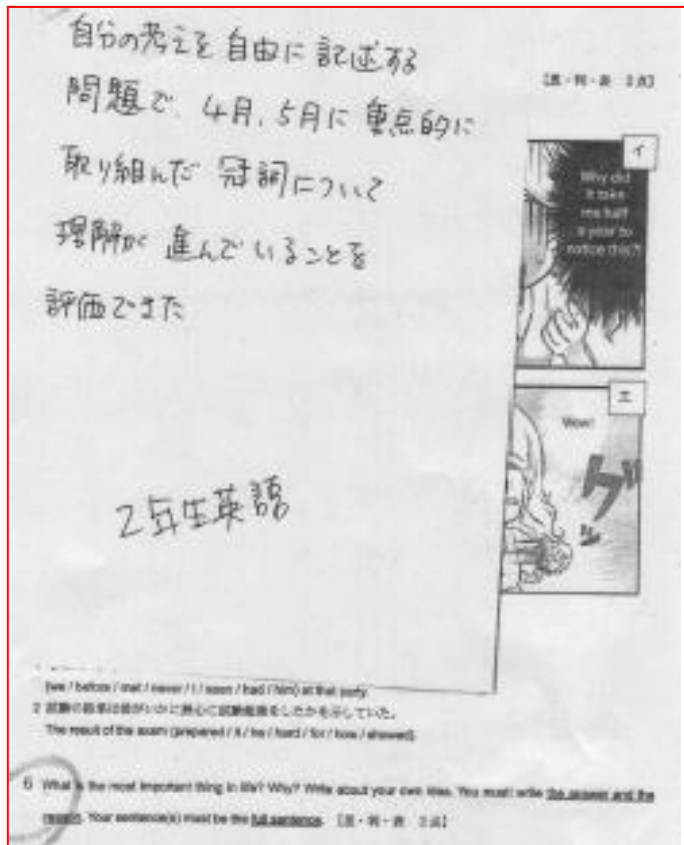 自分の考えを自由に記述する
問題で、4月、5月に重点的に
取り組んだ冠詞について
理解が進んでいることを
評価できた
2年生英語
【思・判・表 2点】
イ
Why did
it take
me half
a year to
notice this?!
エ
Wow!
グ
(we / before / met / never / I / soon / had / him) at that party.
2 試験の結果は彼がいかに熱心に試験勉強をしたかを示していた。
The result of the exam (prepared / it / he / hard / for / how / showed).
6 What is the most important thing in life? Why? Write about your own idea. You must write the answer and the
reason. Your sentence(s) must be the full sentence. 【思・判・表 2点】